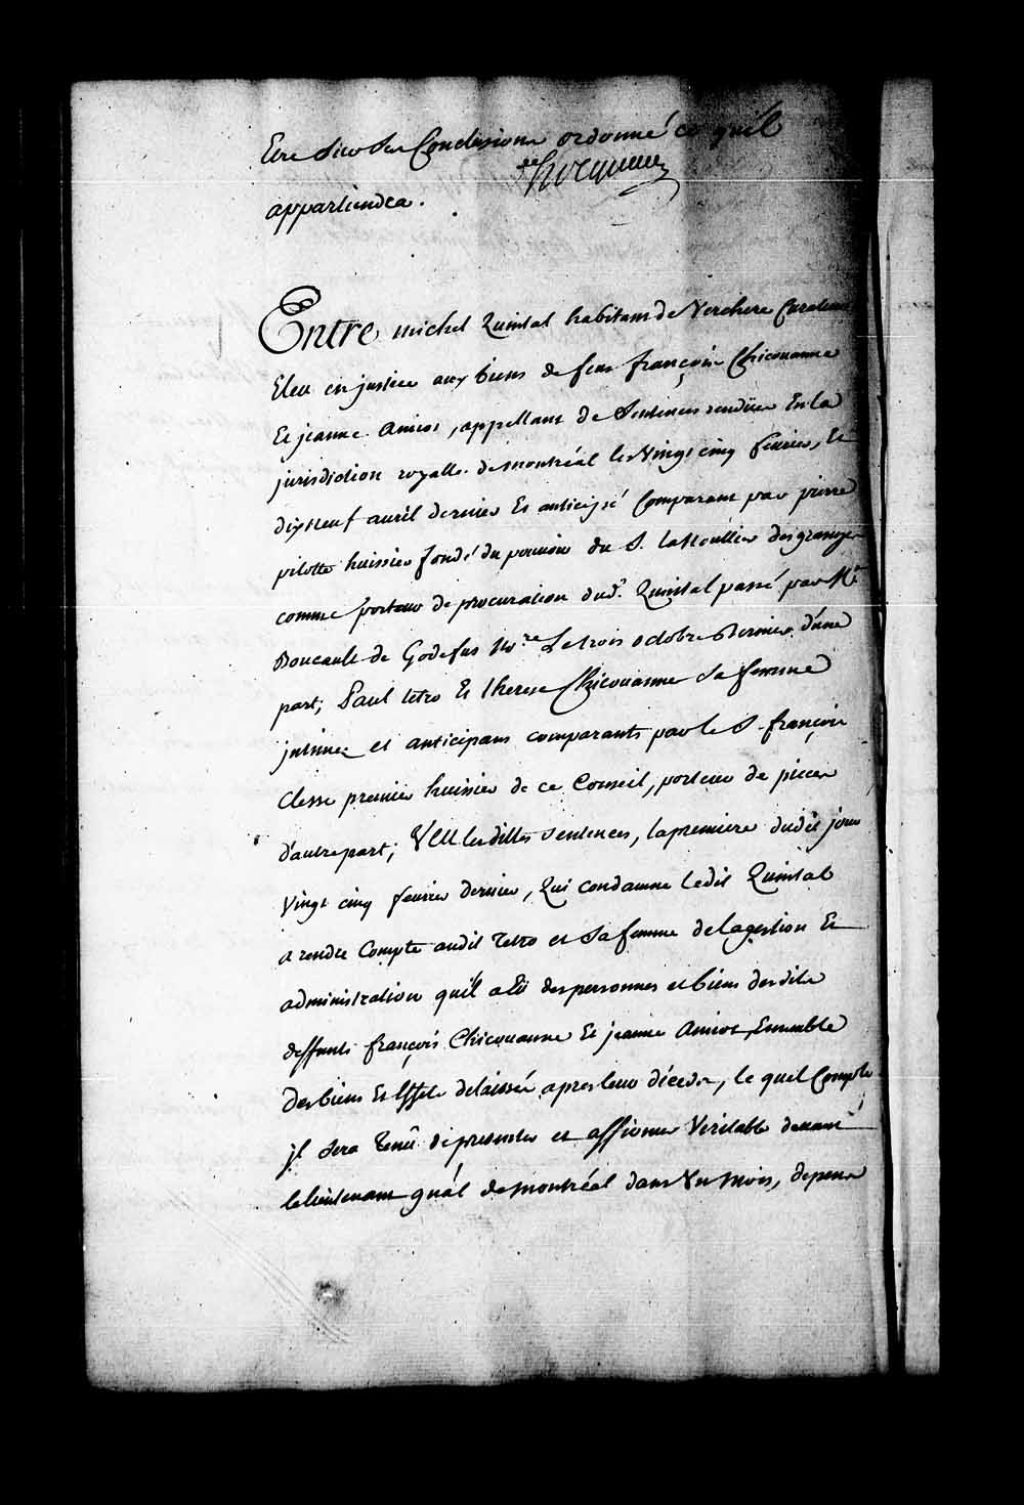 Etre Sur Ses Conclusions ordonné ce qu'il
appartiendra.
hocquart
Entre michel Quintal habitant de Verchere Curateur
Eleu en justice aux biens de feus françois Chicouanne
Et jeanne Amiot, appellant de Sentences rendües En la
jurisdiction royalle de montréal les Vingt cinq feurier, Et
dixneuf auril dernier Et anticipé Comparant par pierre
pilotte huissier fondé du pouuoir du S. Desgranges
comme porteur de procuration dud. Quintal passé par Me
Boucault de Godefus Nore Le trois octobre dernier d'une
part; Paul tetro Et therese Chicouanne Sa femme
jntimez et anticipans comparants par le S. françois
Clesse premier huissier de ce Conseil, porteur de pieces
d'autre part; VEU lesdittes Sentences, la premiere dudit jour
Vingt cinq feurier dernier, Qui condamne Ledit Quintal
a rendre Compte audit Tetro et Sa femme de la gestion Et
administration qu'il a Eü des personnes et biens desdits
deffunts françois Chicouanne Et jeanne Amiot, Ensemble
des biens Et Effets delaissés apres leur décedx, le quel Compte
jl Sera Tenû de presenter et affirmer Véritable deuant
le lieutenant gnãl de montréal dans Vn mois, depens